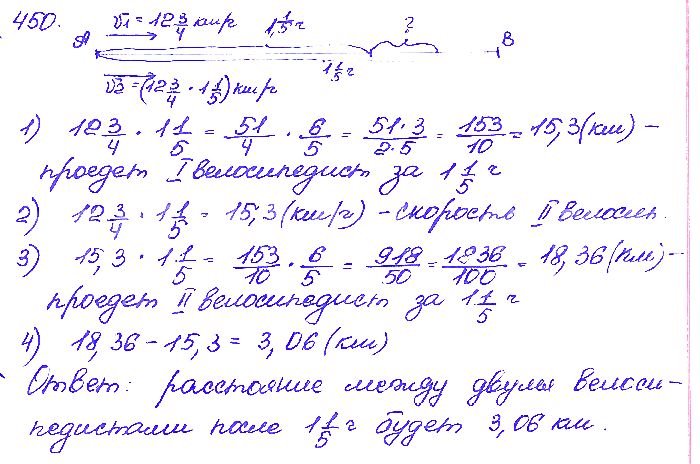 450. v1 = 12 3/4 км/г 1 1/5 г ?
A B
v2 = (12 3/4 · 1 1/5) км/г 1 1/5 г
1) 12 3/4 · 1 1/5 = 51/4 · 6/5 = 51·3/2·5 = 153/10 = 15,3 (км) –
проедет I велосипедист за 1 1/5 г
2) 12 3/4 · 1 1/5 = 15,3 (км/г) – скорость II велосип.
3) 15,3 · 1 1/5 = 153/10 · 6/5 = 918/50 = 1236/100 = 18,36 (км) –
проедет II велосипедист за 1 1/5 г
4) 18,36 – 15,3 = 3,06 (км)
Ответ: расстояние между двумя велоси-
педистами после 1 1/5 г будет 3,06 км.